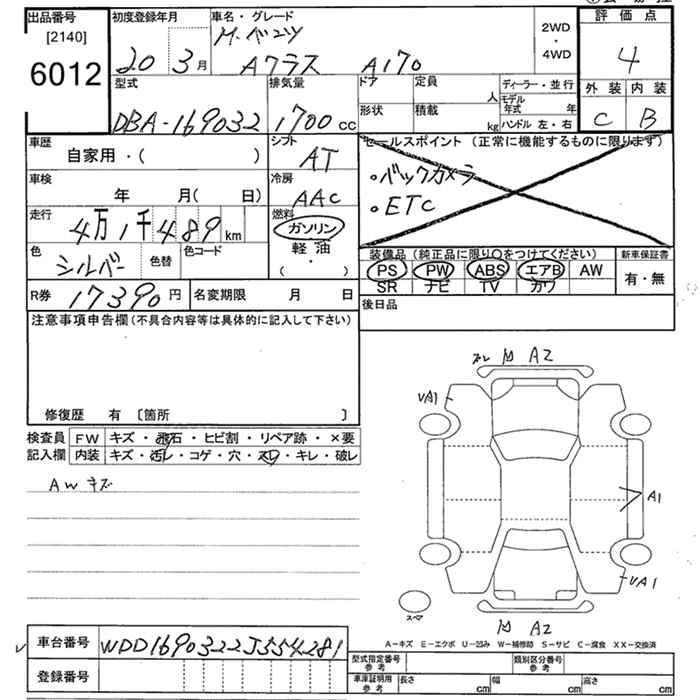 出品番号
[2140]
6012
初度登録年月
20 3月
車名・グレード
M.ベンツ
Aクラス A170
2WD
・
4WD
評価点
4
外装 内装
C B
型式
DBA-169032
排気量
1700 cc
ドア
定員 人
形状
積載 kg
ディーラー・並行
モデル年式 年
ハンドル 左・右
車歴
自家用・( )
シフト
AT
セールスポイント (正常に機能するものに限ります)
・バックカメラ
・ETC
車検
年 月( 日)
冷房
AAC
走行
4万1千489km
燃料
ガソリン
軽油
( ・ )
色
シルバー
色替
色コード
装備品(純正品に限り○をつけてください)
PS PW ABS エアB AW
SR ナビ TV カワ
新車保証書
有・無
R券 17390円
名変期限 月 日
後日品
注意事項申告欄(不具合内容等は具体的に記入して下さい)
修復歴 有 [箇所 ]
検査員
記入欄
FW キズ・飛石・ヒビ割・リペア跡・×要
内装 キズ・汚レ・コゲ・穴・スレ・キレ・破レ
AWキズ
A2
UA1
A1
UA1
スペア
A2
A−キズ E−エクボ U−凹み W−補修跡 S−サビ C−腐食 XX−交換済
車台番号
WDD1690322J554281
登録番号
型式指定番号
参考
類別区分番号
参考
車庫証明用
参考
長さ cm 幅 cm 高さ cm